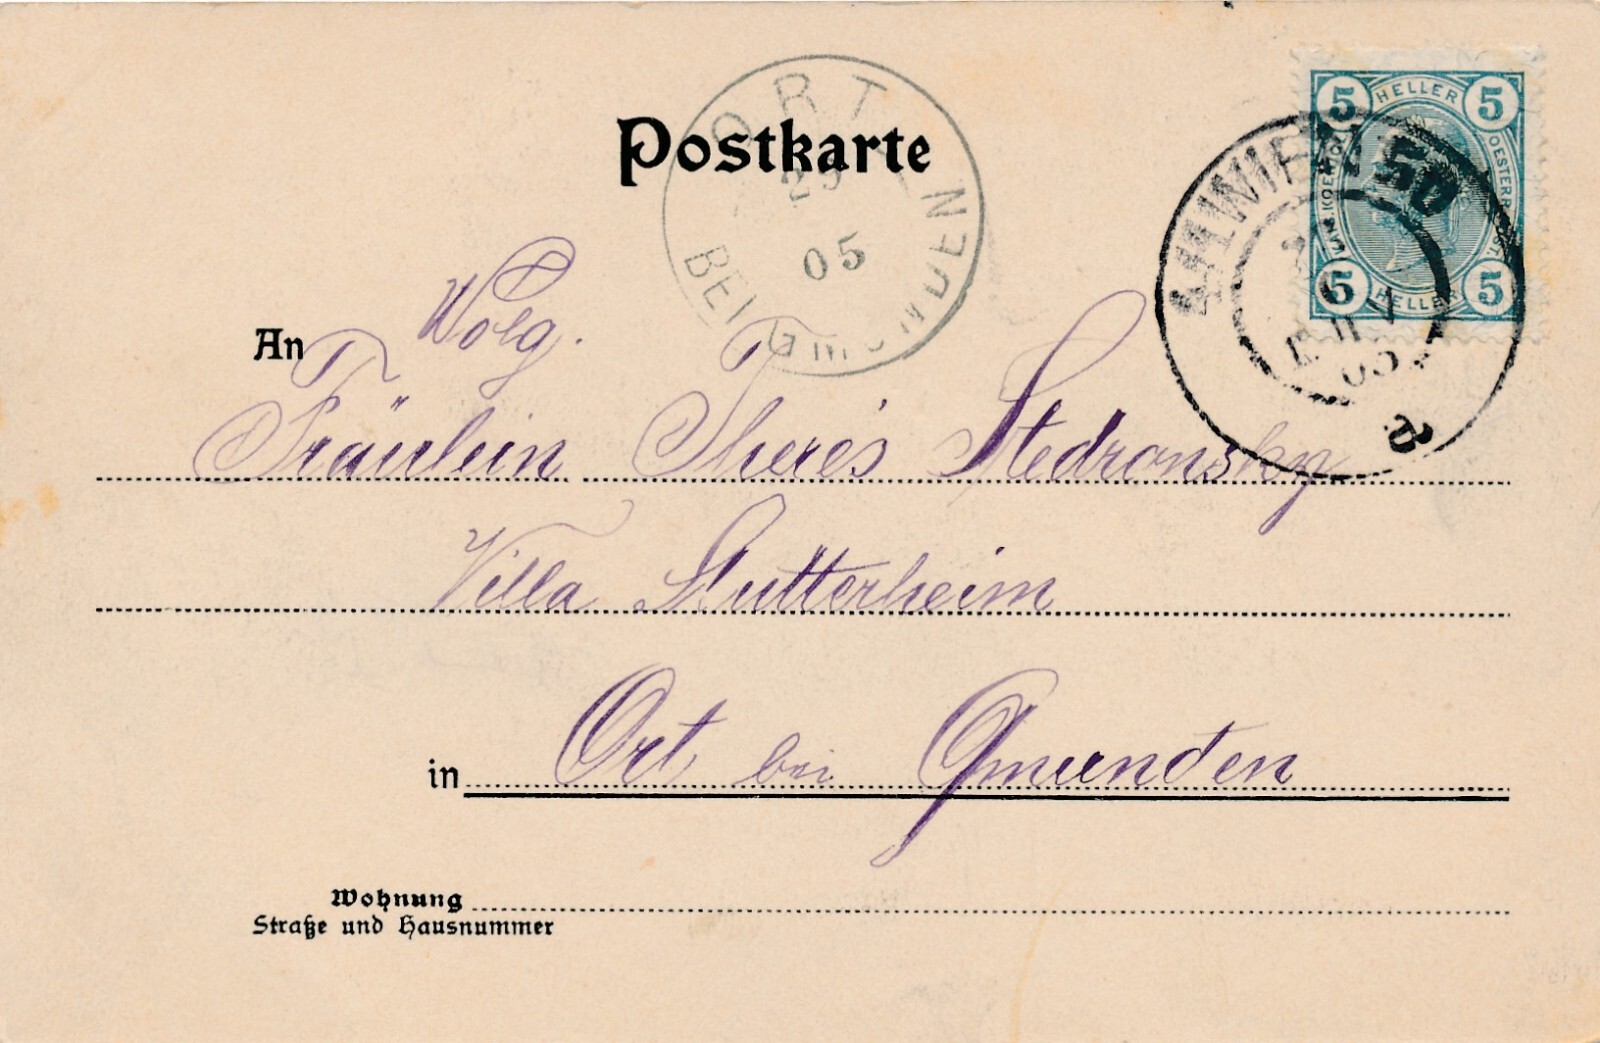 Postkarte
ORT
BEI GMUNDEN
05
5 HELLER 5
5 HELLER 5
WIEN 50
05
An Wolg.
Fräulein Therés Stedronsky
Villa Stutterheim
in Ort bei Gmunden
Wohnung
Straße und Hausnummer